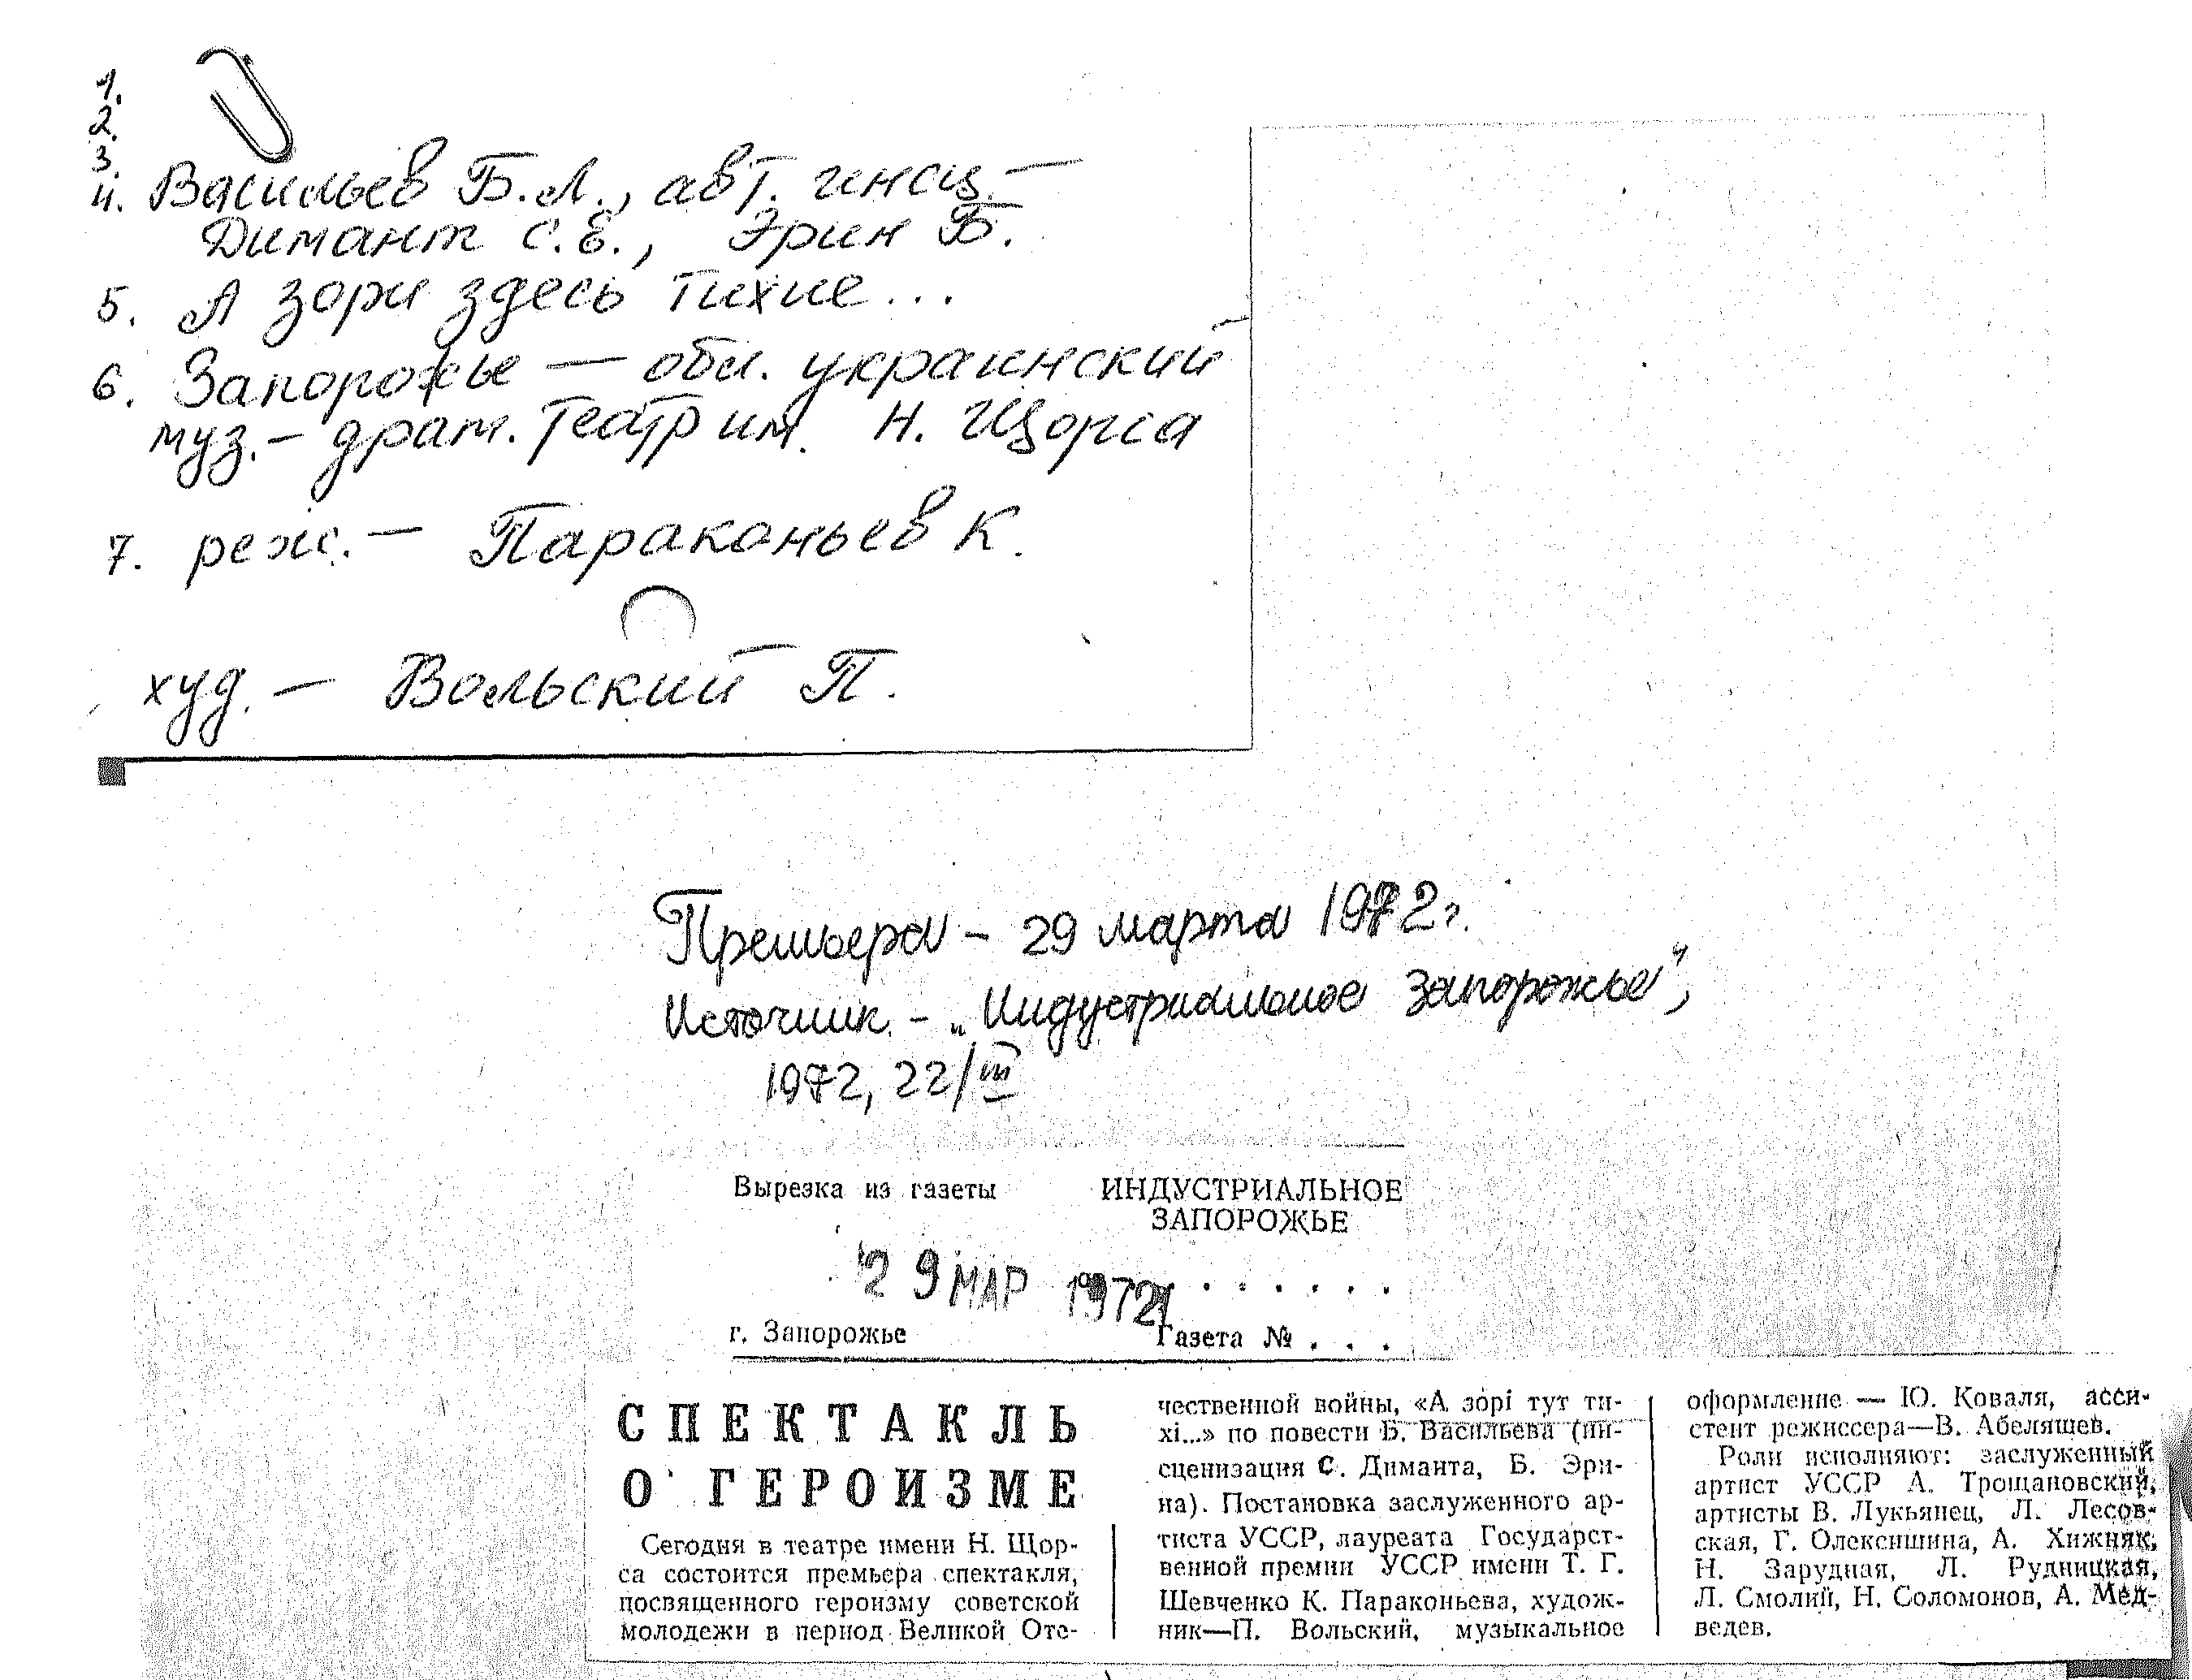 1.
2.
3.
4. Васильев Б.Л., авт. инсц. —
Димант С.Е., Эрин Б.
5. А зори здесь тихие...
6. Запорожье — обл. украинский
муз.- драт. театр им. Н. Щорса
7. реж. — Параконьев К.
худ. — Вольский П.
Премьера - 29 марта 1972 г.
Источник - „Индустриальное Запорожье",
1972, 22/III
Вырезка из газеты
ИНДУСТРИАЛЬНОЕ
ЗАПОРОЖЬЕ
29 МАР 1972 . . . . . .
г. Запорожье
Газета № . . .
СПЕКТАКЛЬ
О ГЕРОИЗМЕ
Сегодня в театре имени Н. Щор-
са состоится премьера спектакля,
посвященного героизму советской
молодежи в период Великой Оте-
чественной войны, «А зорі тут ти-
хі...» по повести Б. Васильева (ин-
сценизация С. Диманта, Б. Эри-
на). Постановка заслуженного ар-
тиста УССР, лауреата Государст-
венной премии УССР имени Т. Г.
Шевченко К. Параконьева, худож-
ник—П. Вольский, музыкальное
оформление — Ю. Коваля, асси-
стент режиссера—В. Абелящев.
Роли исполняют: заслуженный
артист УССР А. Трощановский,
артисты В. Лукьянец, Л. Лесов-
ская, Г. Олексишина, А. Хижняк,
Н. Зарудная, Л. Рудницкая,
Л. Смолий, Н. Соломонов, А. Мед-
ведев.